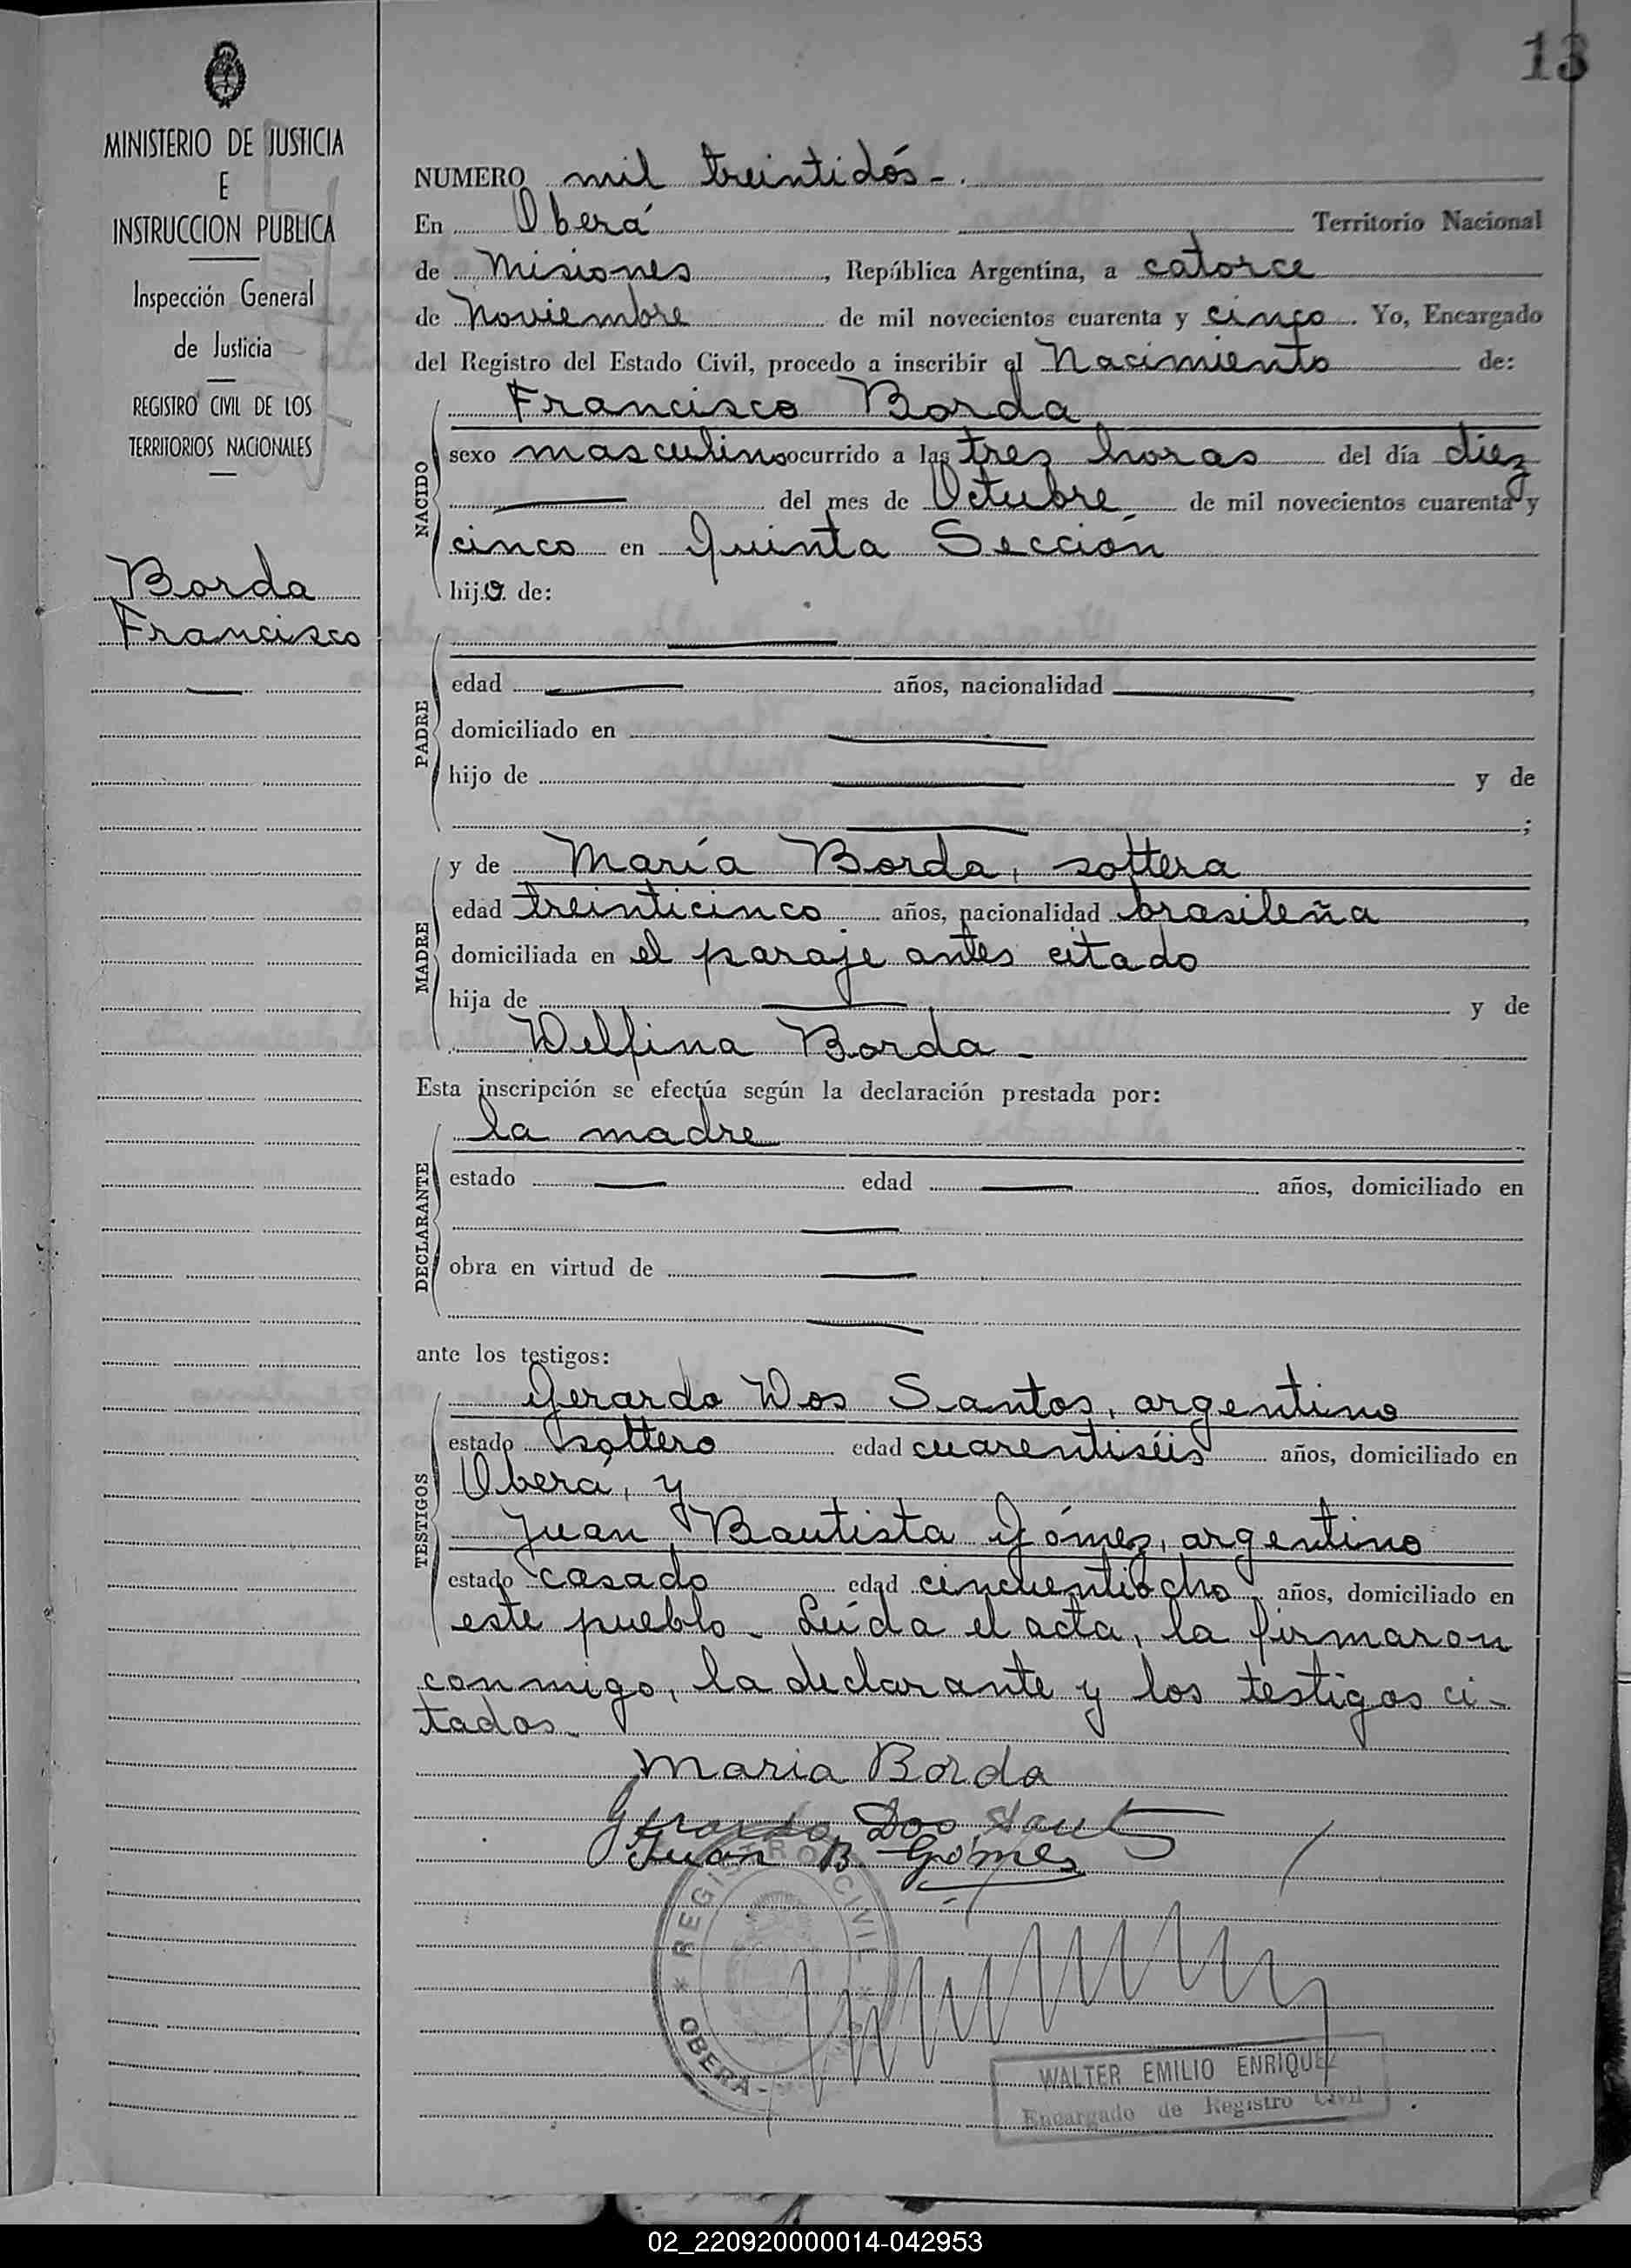 13
MINISTERIO DE JUSTICIA
E
INSTRUCCION PUBLICA
Inspección General
de Justicia
REGISTRO CIVIL DE LOS
TERRITORIOS NACIONALES
Borda
Francisco
NUMERO mil treintidós-.
En Oberá Territorio Nacional
de Misiones, República Argentina, a catorce
de Noviembre de mil novecientos cuarenta y cinco. Yo, Encargado
del Registro del Estado Civil, procedo a inscribir el Nacimiento de:
NACIDO
Francisco Borda
sexo masculino ocurrido a las tres horas del día diez
del mes de Octubre de mil novecientos cuarenta y
cinco en Quinta Sección
hijo de:
PADRE
edad años, nacionalidad ,
domiciliado en
hijo de y de
;
MADRE
y de María Borda, soltera
edad treinticinco años, nacionalidad brasileña,
domiciliada en el paraje antes citado
hija de y de
Delfina Borda-
Esta inscripción se efectúa según la declaración prestada por:
DECLARANTE
la madre
estado edad años, domiciliado en
obra en virtud de
ante los testigos:
TESTIGOS
Gerardo Dos Santos, argentino
estado soltero edad cuarentiséis años, domiciliado en
Oberá, y
Juan Bautista Gómez, argentino
estado casado edad cincuentiocho años, domiciliado en
este pueblo- Leída el acta, la firmaron
conmigo, la declarante y los testigos ci-
tados-
Maria Borda
Gerardo Dos Sant
Juan B. Gómes
REGISTRO CIVIL
OBERA -
WALTER EMILIO ENRIQUEZ
Encargado de Registro Civil
02_220920000014-042953